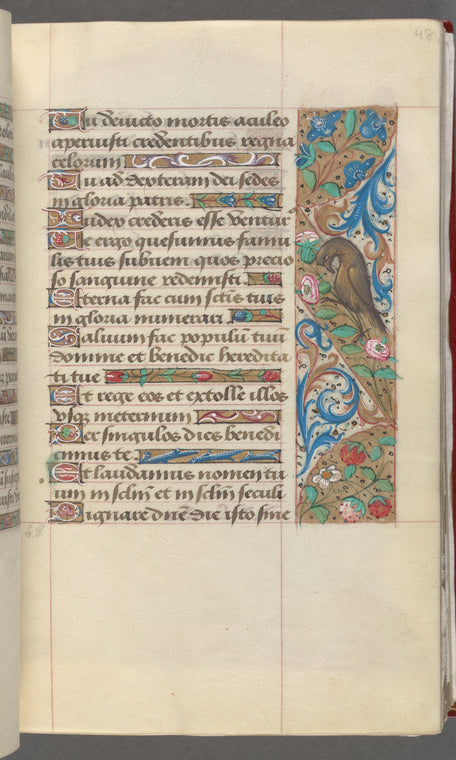 48
Tu devicto mortis aculeo
aperuisti credentibus regna
celorum
Tu ad dexteram dei sedes
in gloria patris
Iudex crederis esse ventur
Te ergo quesumus famu
lis tuis subveni quos precio
so sanguine redemisti
Eterna fac cum sctis tuis
in gloria numerari
Salvum fac populu tuu
domine et benedic heredita
ti tue
Et rege eos et extolle illos
usqz in eternum
Per singulos dies benedi
cimus te
Et laudamus nomen tu
um in sclm et in sclm seculi
Dignare dne die isto sine